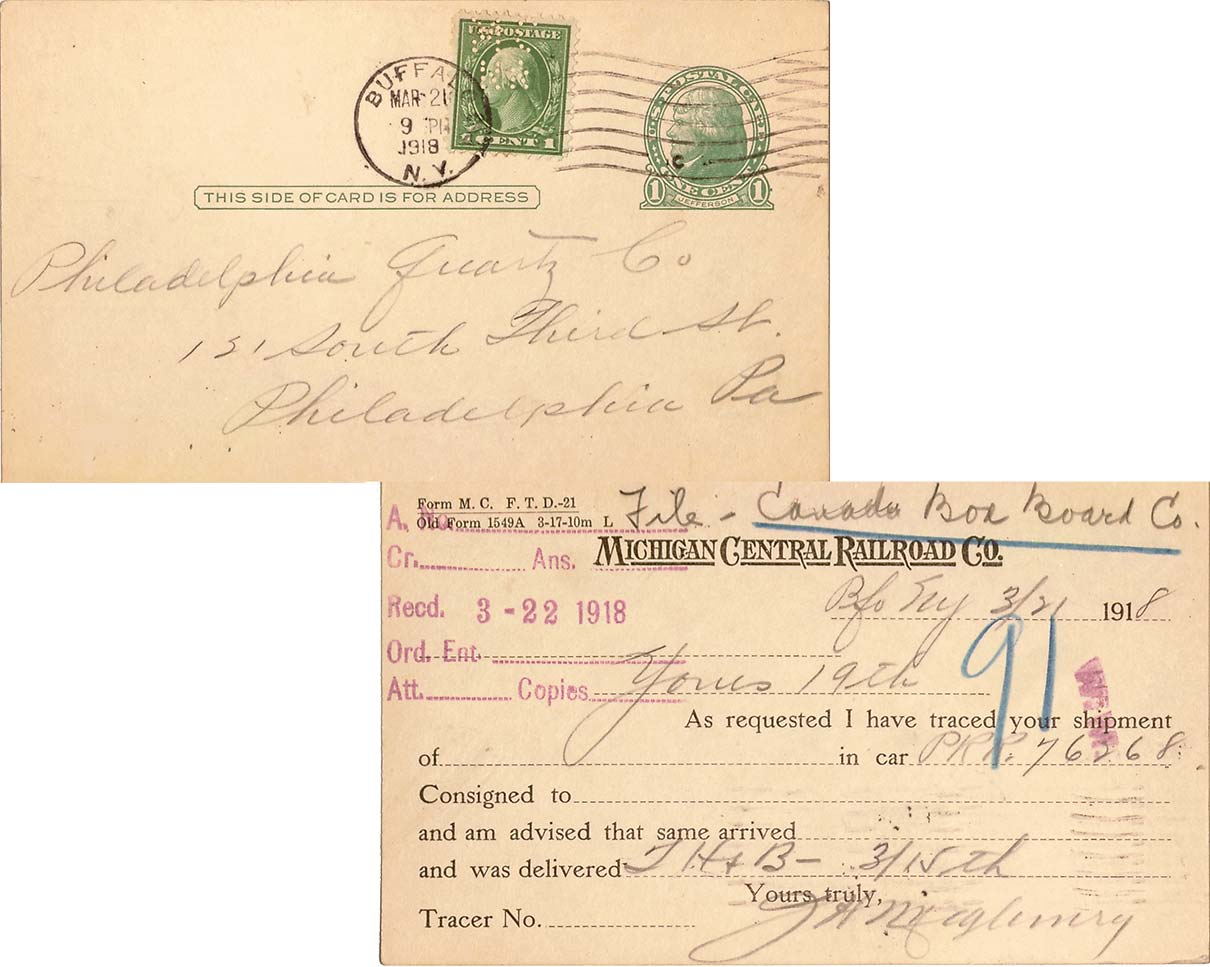 U.S. POSTAGE
BUFFALO
MAR 21
9 PM
1918
N.Y.
CENT 1
U.S. POSTAL CARD
1 ONE CENT 1
JEFFERSON
THIS SIDE OF CARD IS FOR ADDRESS
Philadelphia Quartz Co
131 South Third St.
Philadelphia Pa
Form M. C. F. T. D.-21
Old Form 1549A 3-17-10m L
File - Canada Box Board Co.
A. No.
MICHIGAN CENTRAL RAILROAD CO.
Cr. Ans.
Bfo NY 3/21 1918
Recd. 3-22 1918
91
Ord. Ent.
Yours 19th
Att. Copies
As requested I have traced your shipment
of in car PRR. 76268
Consigned to
and am advised that same arrived
and was delivered T H & B - 3/15th
Yours truly,
Tracer No.